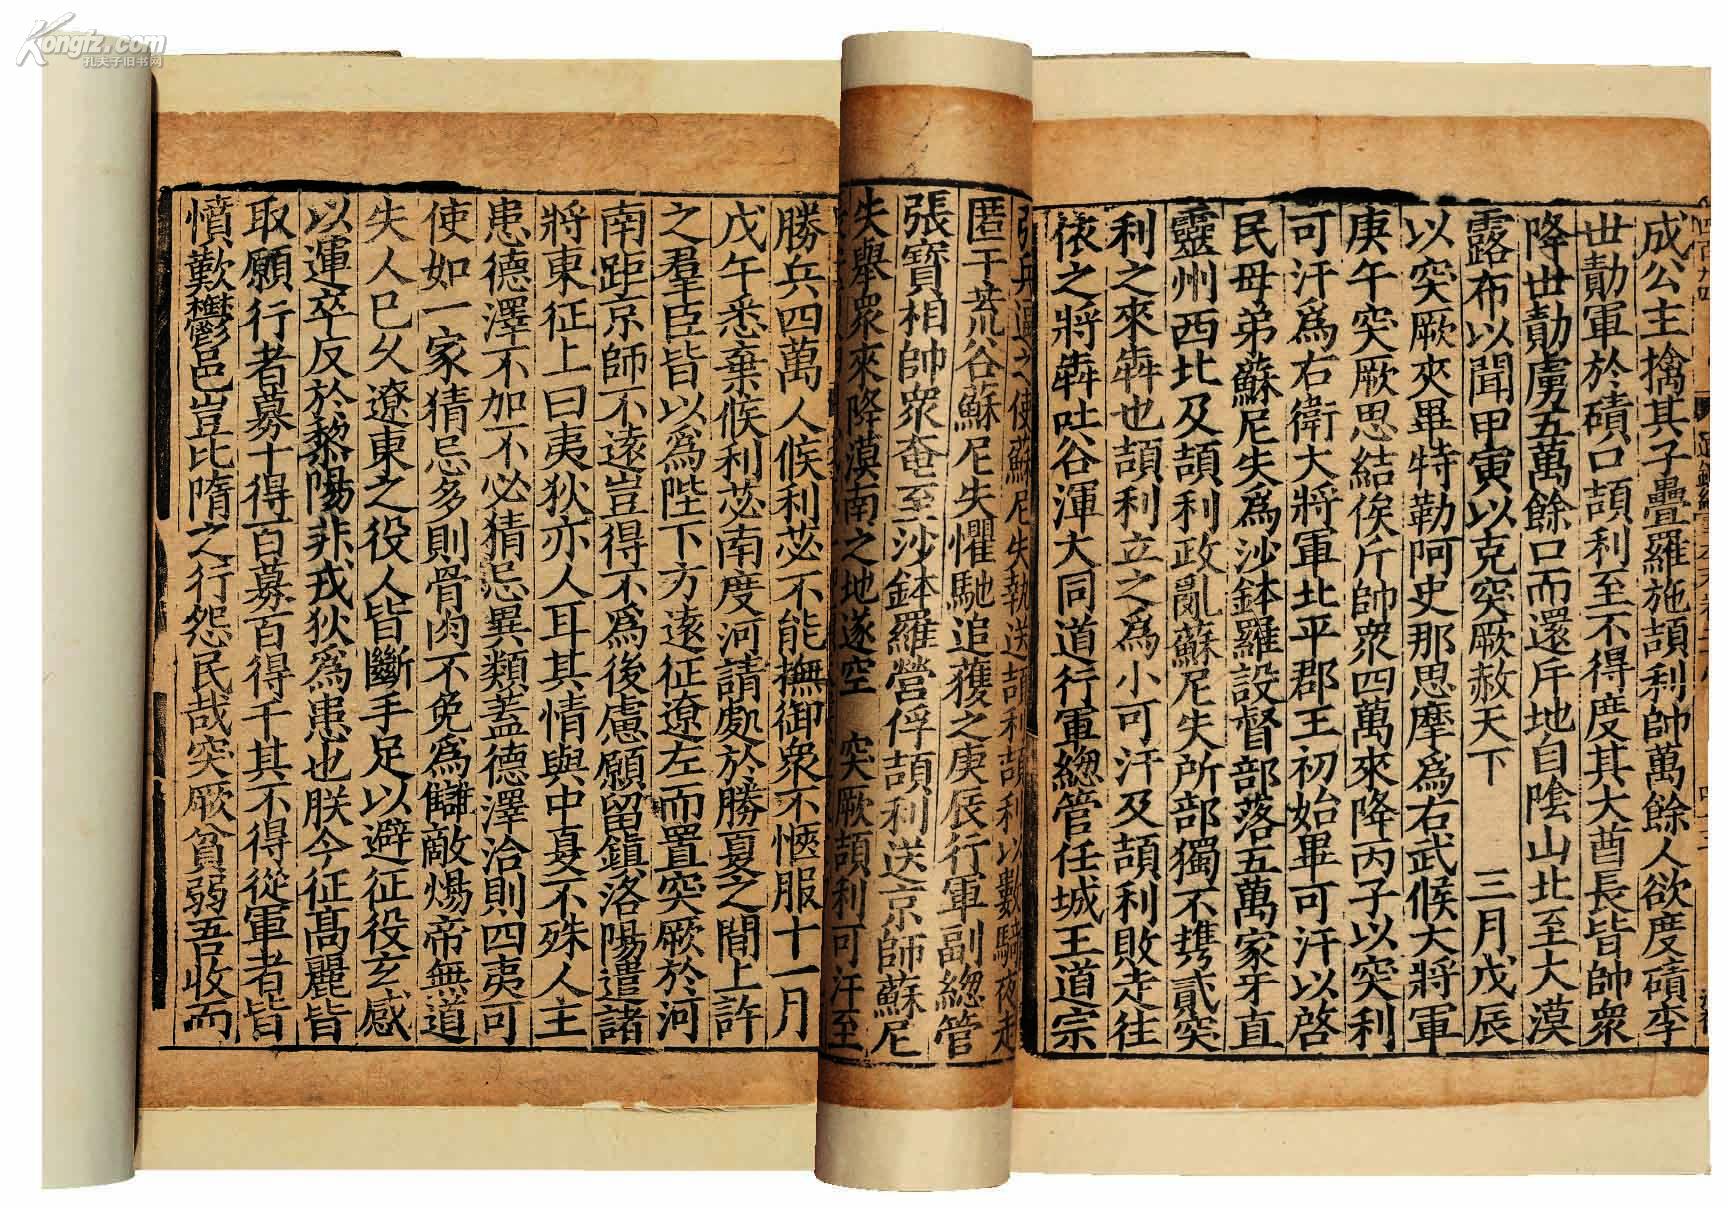 Kongfz.com
孔夫子旧书网
成公主擒其子疊羅施頡利帥萬餘人欲度磧李
世勣軍於磧口頡利至不得度其大酋長皆帥衆
降世勣虜五萬餘口而還斥地自隂山北至大漠
露布以聞甲寅以克突厥赦天下 三月戊辰
以突厥夾畢特勒阿史那思摩爲右武候大將軍
庚午突厥思結俟斤帥衆四萬來降丙子以突利
可汗爲右衛大將軍北平郡王初始畢可汗以啓
民母弟蘇尼失爲沙鉢羅設督部落五萬家牙直
靈州西北及頡利政亂蘇尼失所部獨不携貳突
利之來奔也頡利立之爲小可汗及頡利敗走往
依之將奔吐谷渾大同道行軍緫管任城王道宗
引兵逼之使蘇尼失執送頡利頡利以數騎夜走
匿于荒谷蘇尼失懼馳追獲之庚辰行軍副緫管
張寳相帥衆奄至沙鉢羅營俘頡利送京師蘇尼
失舉衆來降漠南之地遂空 突厥頡利可汗至
勝兵四萬人候利苾不能撫御衆不愜服十一月
戊午悉棄候利苾南度河請處於勝夏之間上許
之羣臣皆以爲陛下方遠征遼左而置突厥於河
南距京師不遠豈得不爲後慮願留鎮洛陽遣諸
將東征上曰夷狄亦人耳其情與中夏不殊人主
患德澤不加不必猜忌異類蓋德澤洽則四夷可
使如一家猜忌多則骨肉不免爲讎敵煬帝無道
失人已久遼東之役人皆斷手足以避征役玄感
以運卒反於黎陽非戎狄爲患也朕今征髙麗皆
取願行者募十得百募百得千其不得從軍者皆
憤歎鬱邑豈比隋之行怨民哉突厥貧弱吾收而